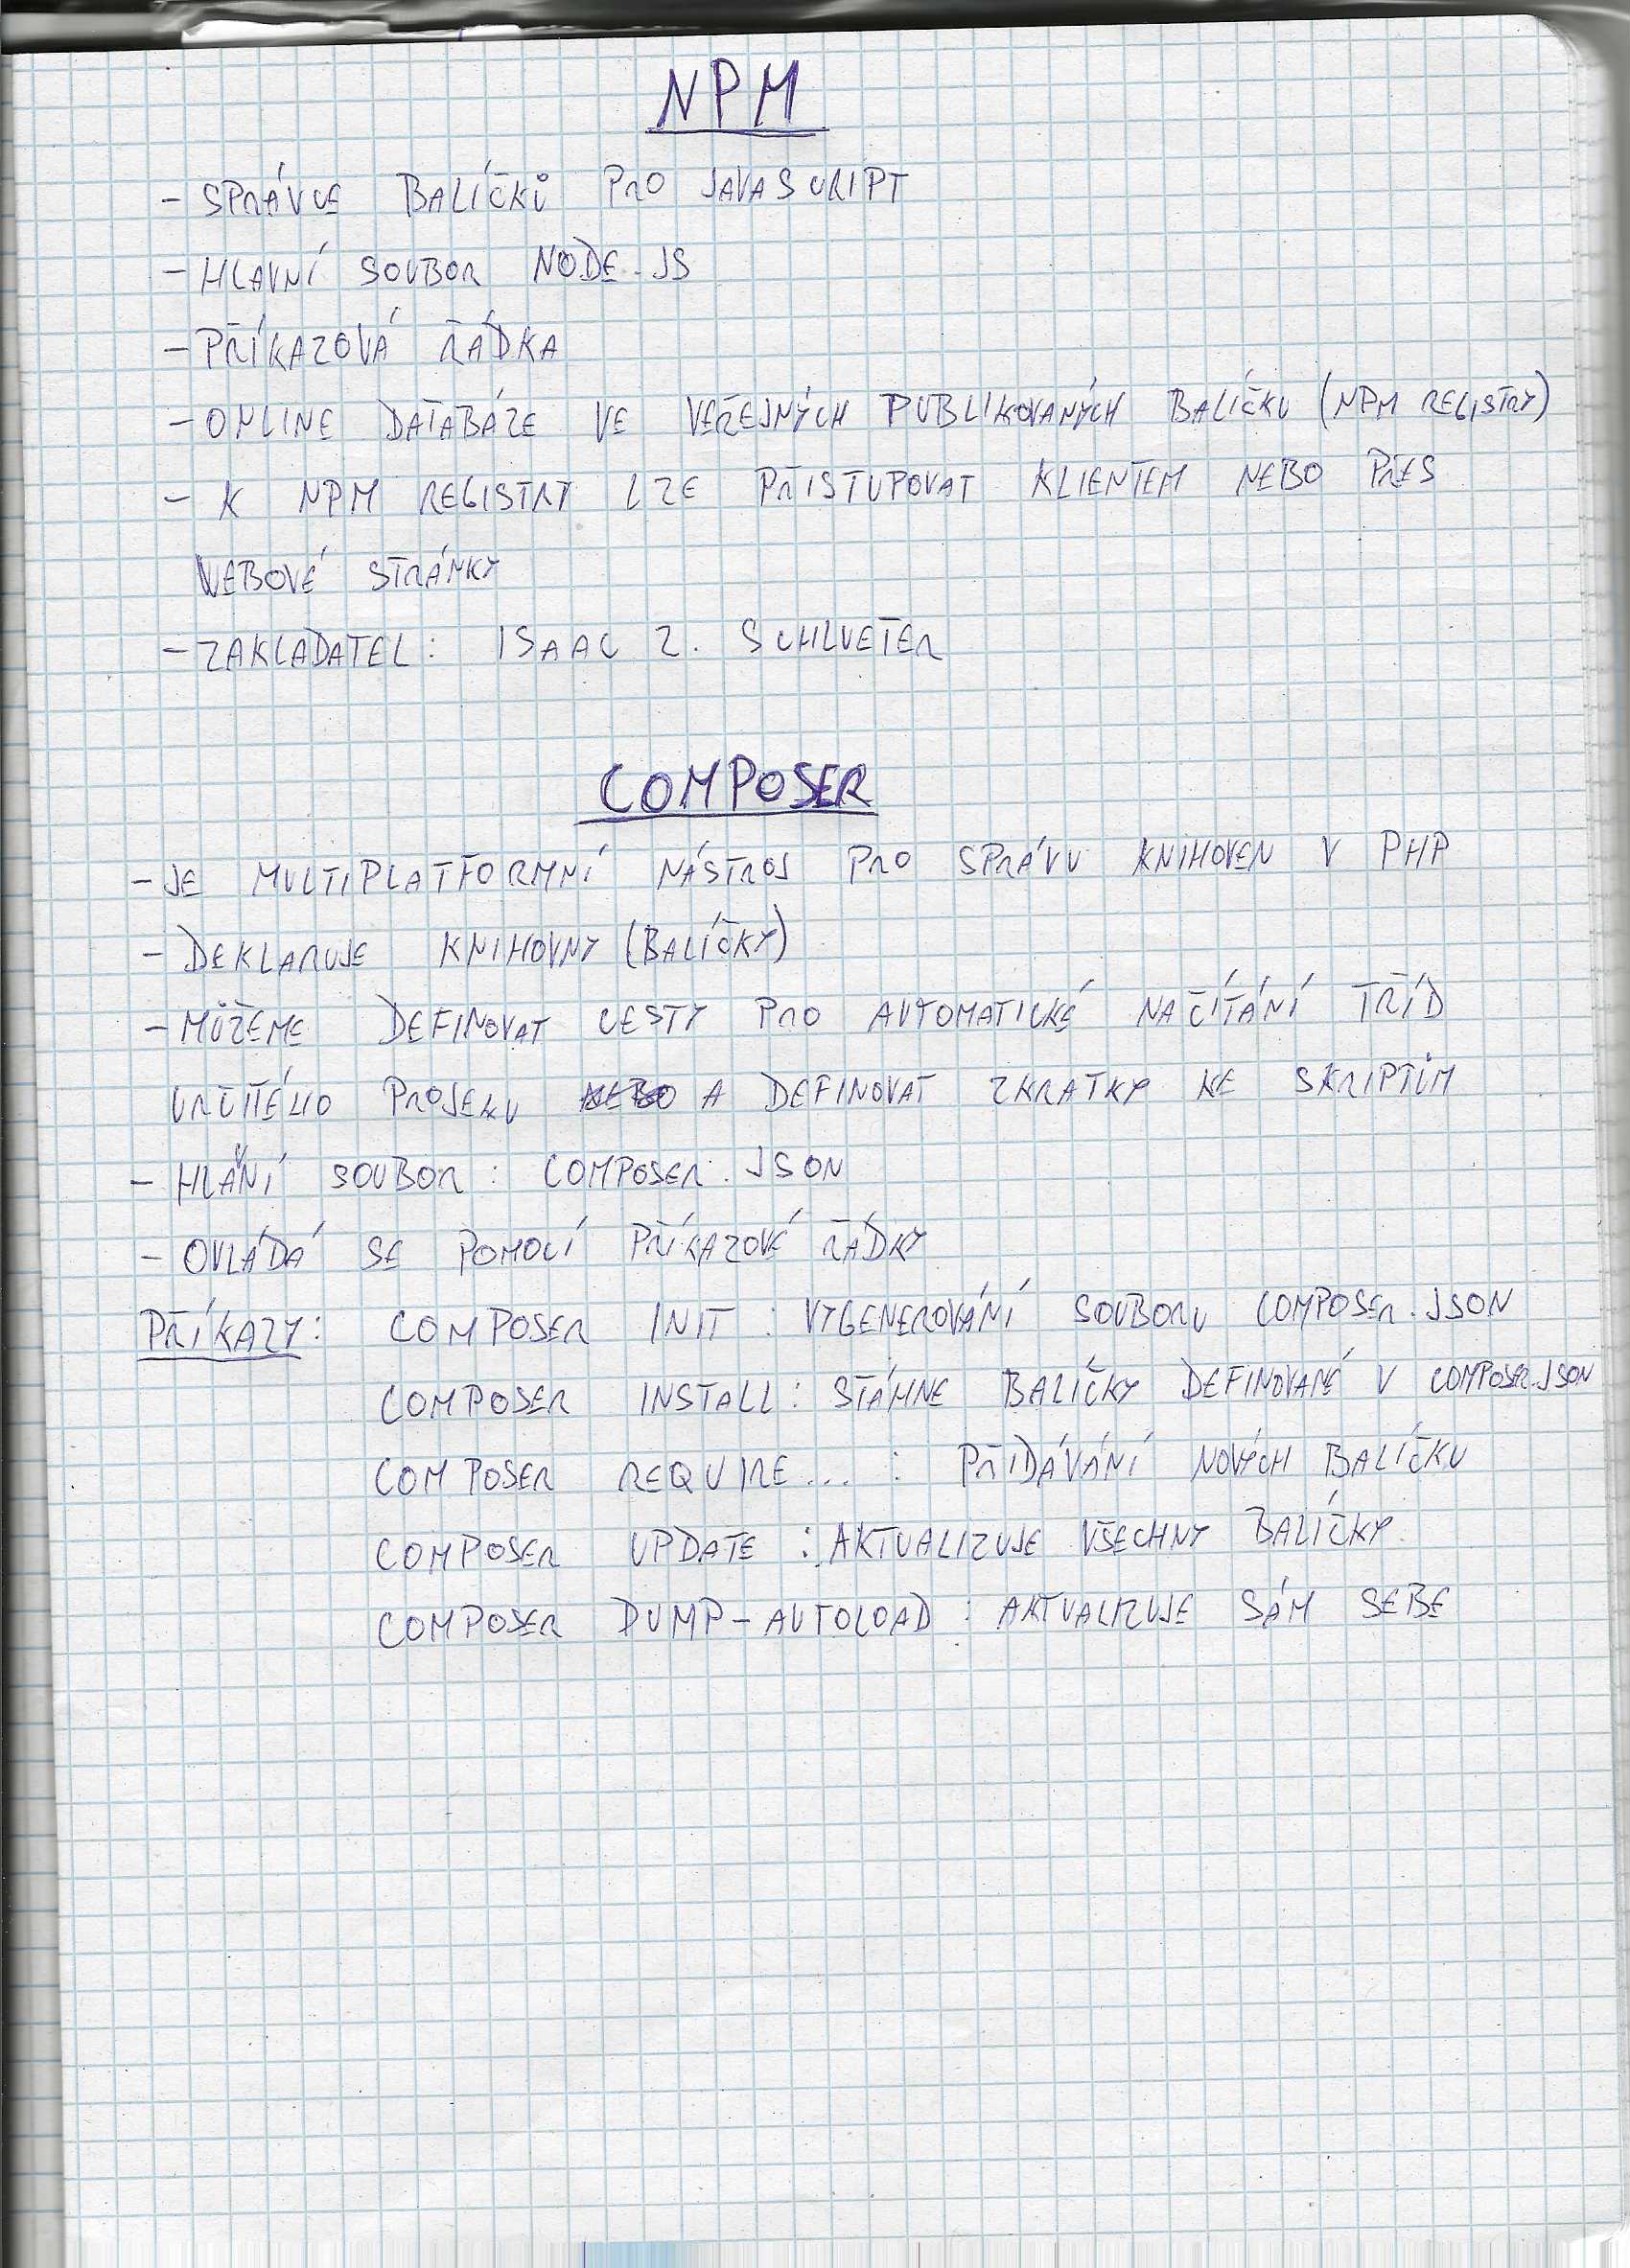 NPM
- SPRÁVCE BALÍČKŮ PRO JAVASCRIPT
- HLAVNÍ SOUBOR NODE.JS
- PŘÍKAZOVÁ ŘÁDKA
- ONLINE DATABÁZE VE VEŘEJNÝCH PUBLIKOVANÝCH BALÍČKU (NPM REGISTRY)
- K NPM REGISTRY LZE PŘISTUPOVAT KLIENTEM NEBO PŘES
WEBOVÉ STRÁNKY
- ZAKLADATEL: ISAAC Z. SCHLUETER
COMPOSER
- JE MULTIPLATFORMNÍ NÁSTROJ PRO SPRÁVU KNIHOVEN V PHP
- DEKLARUJE KNIHOVNY (BALÍČKY)
- MŮŽEME DEFINOVAT CESTY PRO AUTOMATICKÉ NAČÍTÁNÍ TŘÍD
URČITÉHO PROJEKU NEBO A DEFINOVAT ZKRATKY KE SKRIPTŮM
- HLAVNÍ SOUBOR: COMPOSER.JSON
- OVLÁDÁ SE POMOCÍ PŘÍKAZOVÉ ŘÁDKY
PŘÍKAZY: COMPOSER INIT : VYGENEROVÁNÍ SOUBORU COMPOSER.JSON
COMPOSER INSTALL: STÁHNE BALÍČKY DEFINOVANÉ V COMPOSER.JSON
COMPOSER REQUIRE... : PŘIDÁVÁNÍ NOVÝCH BALÍČKU
COMPOSER UPDATE : AKTUALIZUJE VŠECHNY BALÍČKY
COMPOSER DUMP-AUTOLOAD : AKTUALIZUJE SÁM SEBE